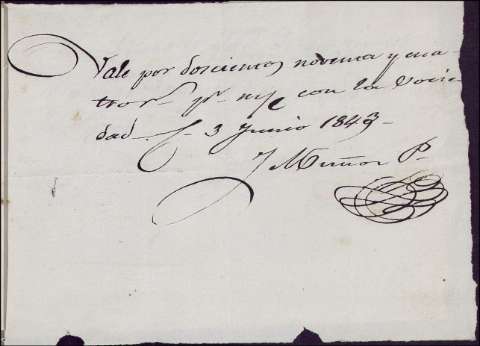 Vale por doscientos noventa y cua-
tro r.s p.r m/c con la Socie
dad S. 3 Junio 1843-
J Muñoz P.